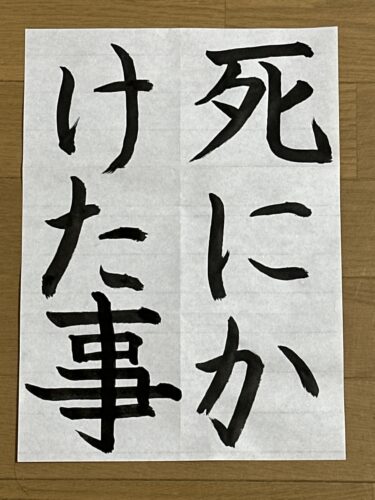 死にか
けた事